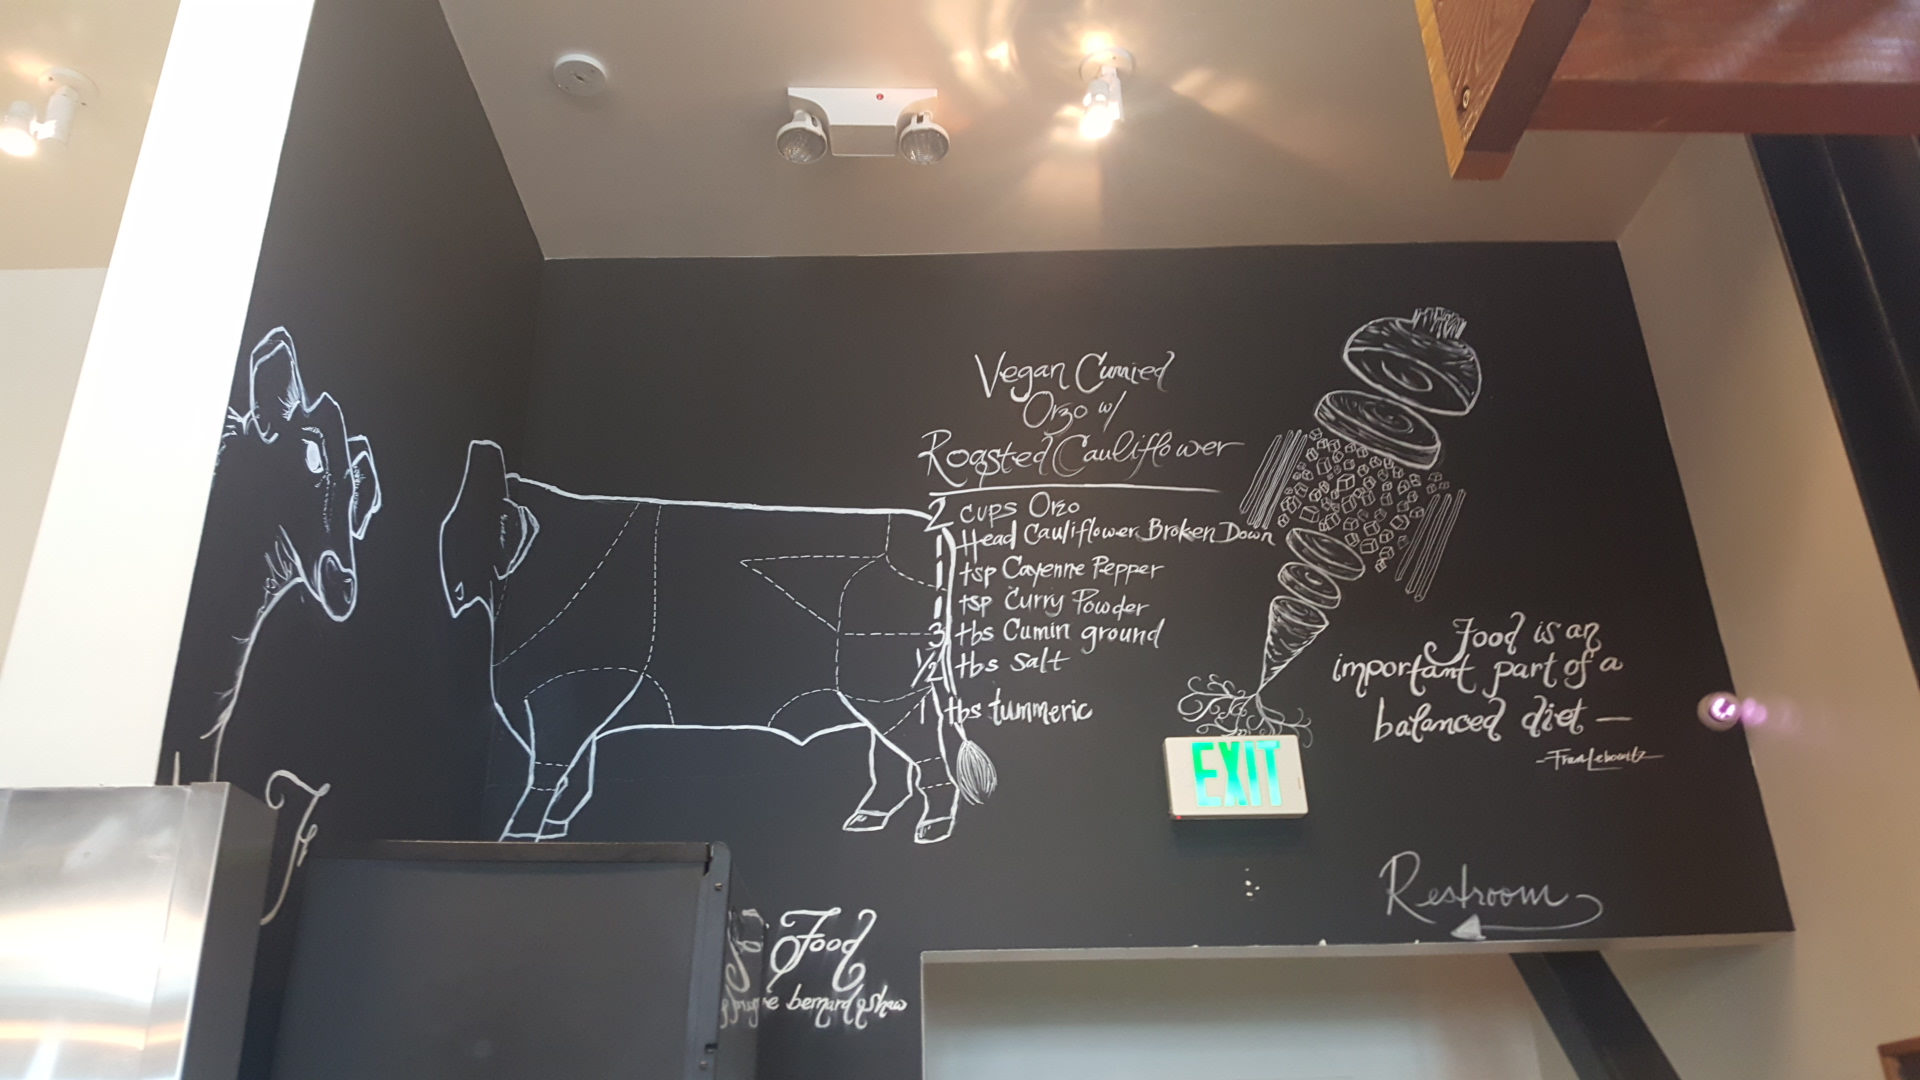 Vegan Curried
Orzo w/
Roasted Cauliflower
2 cups Orzo
1 Head Cauliflower Broken Down
1 tsp Cayenne Pepper
1 tsp Curry Powder
3 tbs Cumin ground
1/2 tbs Salt
1 tbs tummeric
Food is an
important part of a
balanced diet —
- Fran Lebowitz -
EXIT
Restroom
Food
bernard shaw